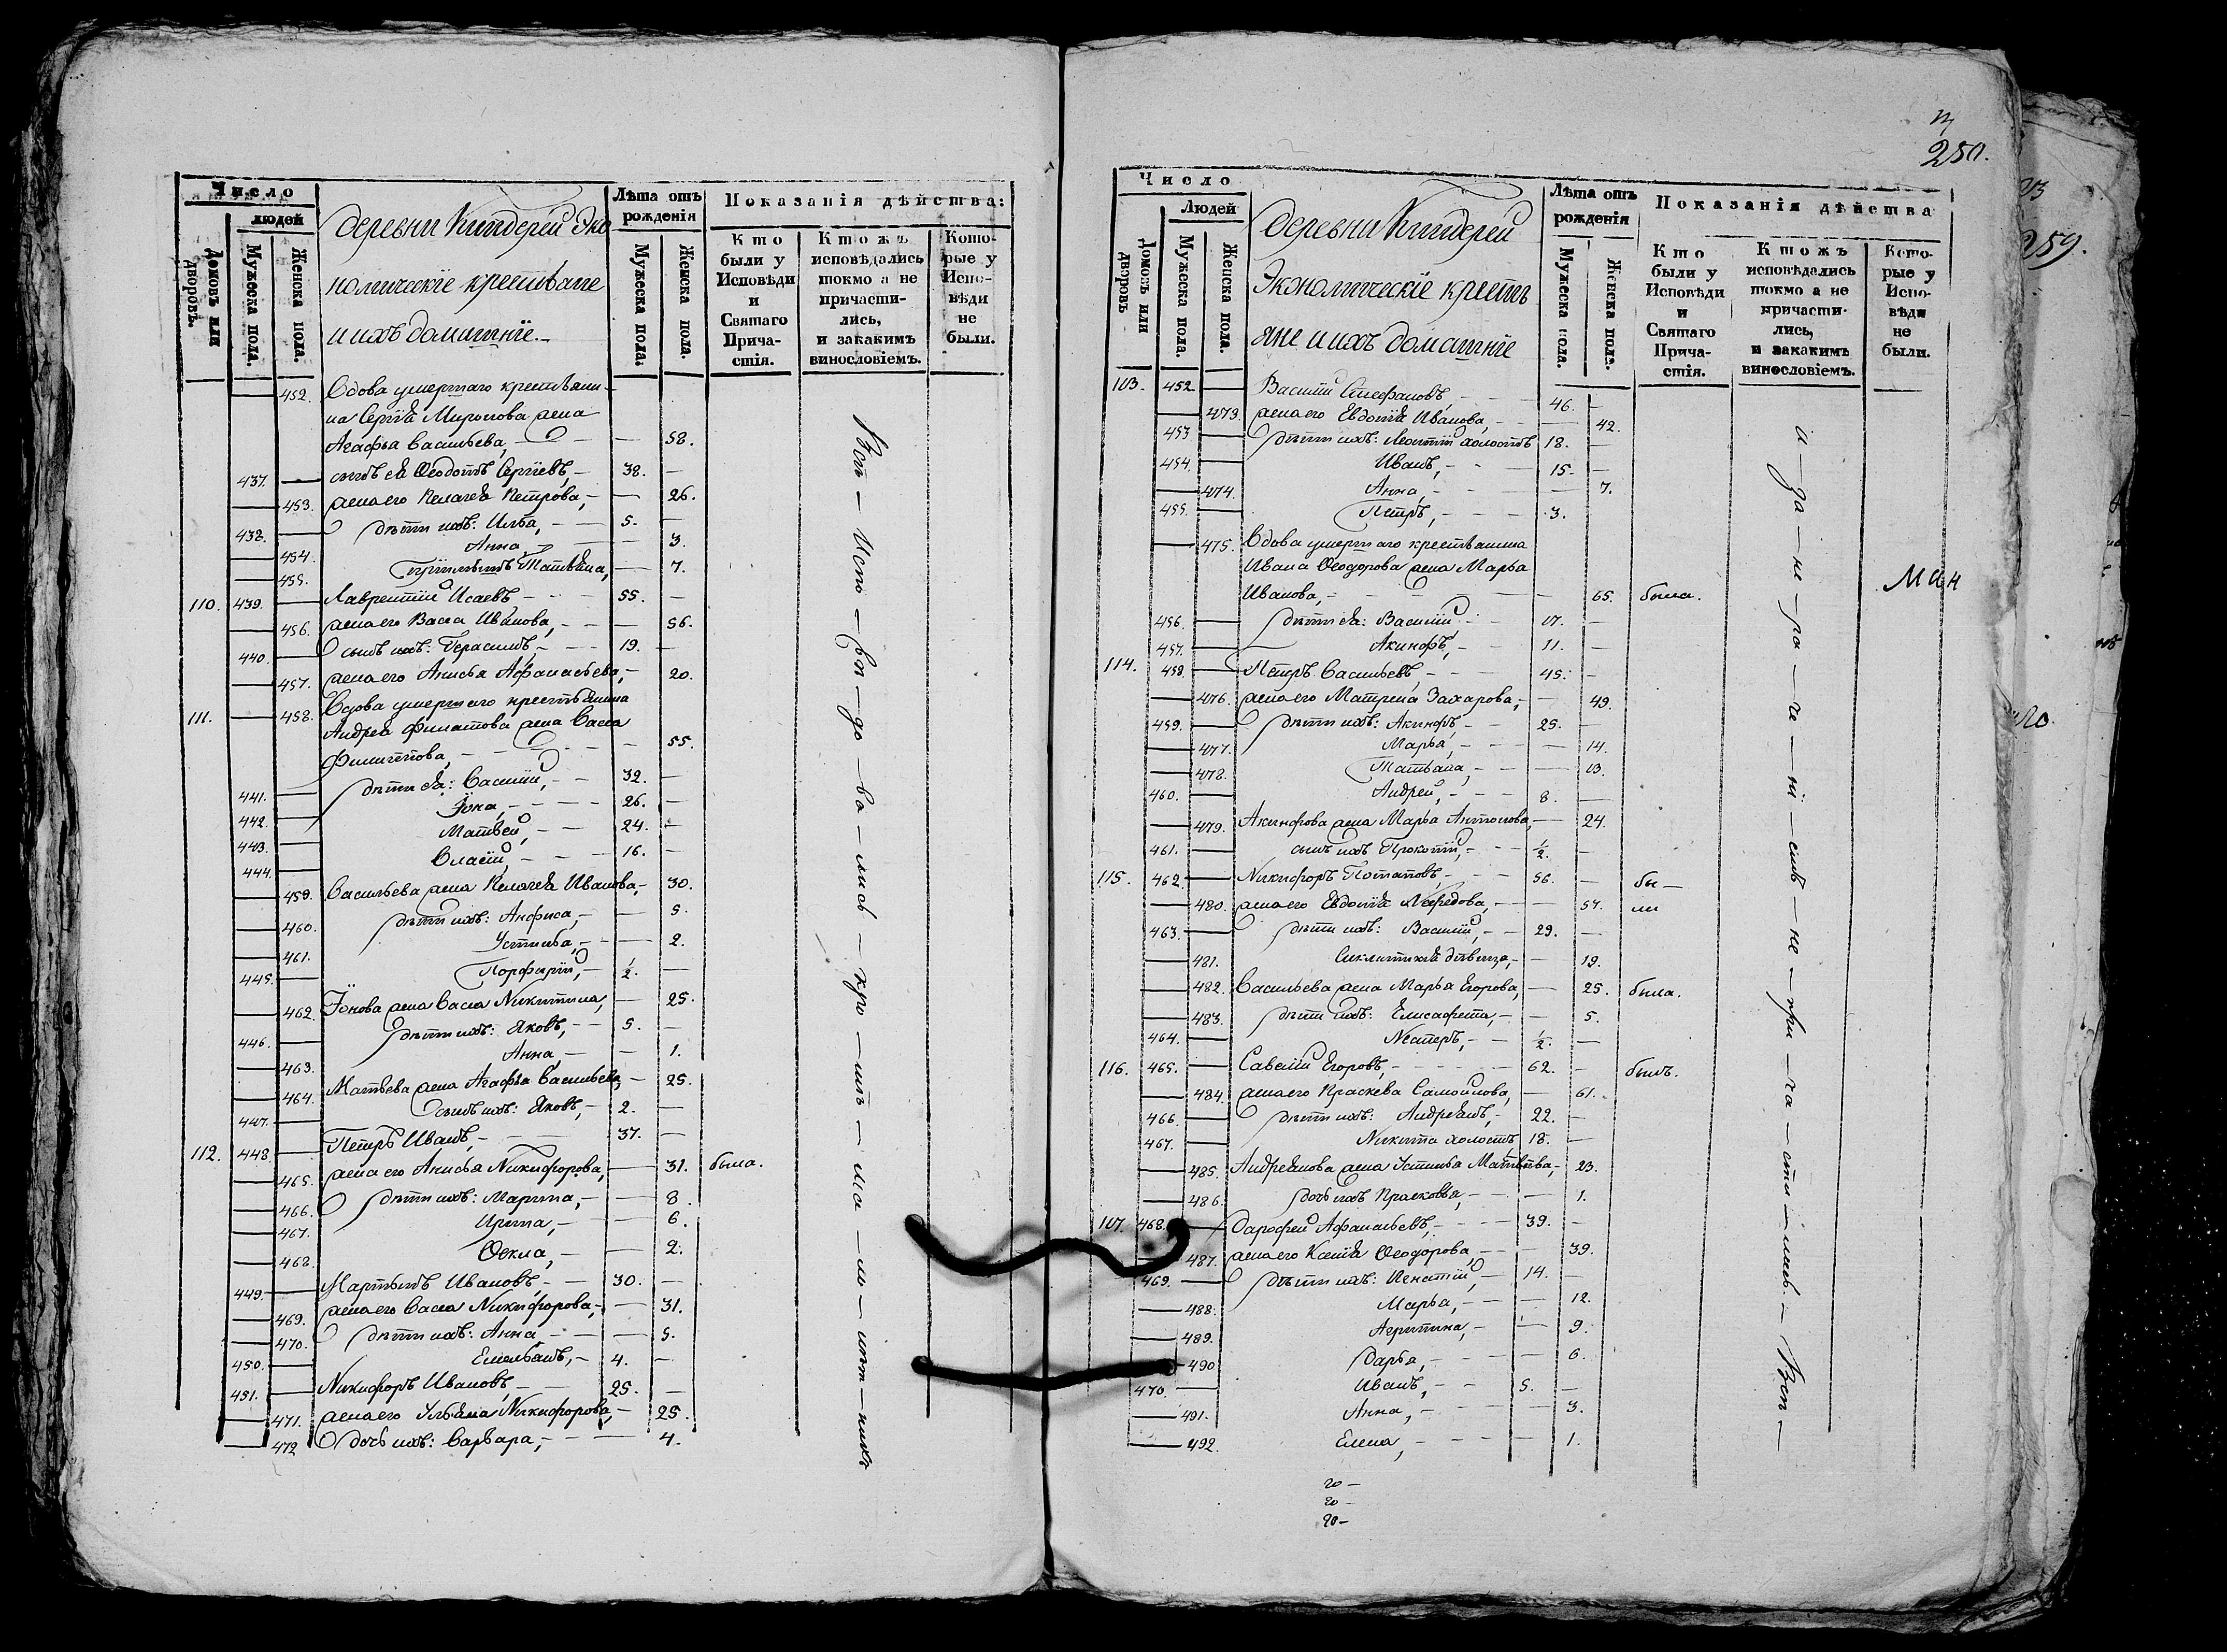 Число
людей
Домовъ или дворовъ.
Мужеска пола.
Женска пола.
деревни Киндерей Эко
номическіе крестьяне
и ихъ домашніе.
Лѣта отъ
рожденія
Мужеска пола.
Женска пола.
Показанія дѣйства:
Кто
были у
Исповѣди
и
Святаго
Прича-
стія.
Ктожъ
исповѣдались
токмо а не
причасти-
лись,
и закакимъ
винословіемъ.
Кото-
рые у
Испо-
вѣди
не
были.
452. Вдова умершаго крестьяни-
на Сергѣя Миронова жена
Агафья Васильева, 58.
437. сынъ ея Ѳеодотъ Сергіевъ, 38.
453. жена его Пелагея Петрова, 26.
438. дѣти ихъ: Илья, 5.
454. Анна, 3.
455. Татьяна, 7.
110. 439. Лаврентій Исаевъ 55.
456. жена его Васса Иванова, 56.
440. сынъ ихъ: Герасимъ, 19.
457. жена его Анисья Аѳанасьева, 20.
111. 458. Вдова умершаго крестьянина
Андрея Филатова жена Васса
Филиппова, 55.
441. дѣти ея: Василій, 32.
442. Іона, 26.
443. Матвей, 24.
444. Власій, 16.
459. Васильева жена Пелагея Иванова, 30.
460. дѣти ихъ: Анфиса, 5.
461. Устинья, 2.
445. Порфирій, ½.
462. Іонова жена Васса Никитина, 25.
446. дѣти ихъ: Яковъ, 5.
463. Анна, 1.
464. Матвева жена Агафья Васильева, 25.
447. сынъ ихъ: Яковъ, 2.
112. 448. Петръ Иванъ, 37.
465. жена его Анисья Никифорова, 31. была.
466. дѣти ихъ: Марина, 8.
467. Ирина, 6.
468. Ѳекла, 2.
449. Мартынъ Ивановъ, 30.
469. жена его Васса Никифорова, 31.
470. дѣти ихъ: Анна 5.
450. Емельянъ, 4.
451. Никифоръ Ивановъ, 25.
471. жена его Ульяна Никифорова, 25.
472 дочь ихъ: Варвара, 4.
Всѣ — испо — вѣ — до — ва — лись — кро — мѣ — ма — ло — лѣт — нихъ
250.
Число
Людей
Домовъ или дворовъ
Мужеска пола.
Женска пола.
деревни Киндерей
Экономическіе кресть
яне и ихъ домашніе
Лѣта отъ
рожденія
Мужеска пола.
Женска пола.
Показанія дѣйства
Кто
были у
Исповѣди
и
Святаго
Прича-
стія.
Ктожъ
исповѣдались
токмо а не
причасти-
лись,
и закакимъ
винословіемъ.
Кото-
рые у
Испо-
вѣди
не
были.
113. 452. Василій Стефановъ, 46.
473. жена его Евдокія Иванова, 42.
453 дѣти ихъ: Леонтій холостъ 18.
454. Иванъ, 15.
474. Анна, 7.
455. Петръ, 3.
475. Вдова умершаго крестьянина
Ивана Ѳеодорова жена Марья
Иванова, 65. была.
456. дѣти ея: Василій 17.
457. Акинфъ, 11.
114. 458. Петръ Васильевъ, 45.
476. жена его Матрена Захарова, 49.
459. дѣти ихъ: Акинфъ, 25.
477. Марья, 14.
478. Татьяна, 13.
460. Андрей, 8.
479. Акинфова жена Марья Антонова, 24.
461. сынъ ихъ Прокопій, ½.
115. 462. Никифоръ Потаповъ, 56. бы—
480. жена его Евдокія 57. ли
463. дѣти ихъ: Василій, 29.
481. Синклитикія дѣвица, 19.
482. Васильева жена Марья Егорова, 25. была.
483. дѣти ихъ: Елисафета, 5.
464. Нестеръ, ½.
116. 465. Савелій Егоровъ, 62. былъ.
484. жена его Праскева Самойлова, 61.
466. дѣти ихъ: Андреянъ, 22.
467. Никита холостъ 18.
485. Андреянова жена Устинья Матвѣева, 23.
486. дочь ихъ Прасковья, 1.
117. 468. Дарофей Аѳанасьевъ, 39.
487. жена его Ксенія Ѳеодорова, 39.
469. дѣти ихъ: Игнатій, 14.
488. Марья, 12.
489. Агрипина, 9.
490 Дарья, 6.
470. Иванъ, 5.
491. Анна, 3.
492. Елена, 1.
и — за — не — ра — че — ні — емъ — не — при — ча — сти — лись. — Всѣ —
20 —
20 —
20 —
259.